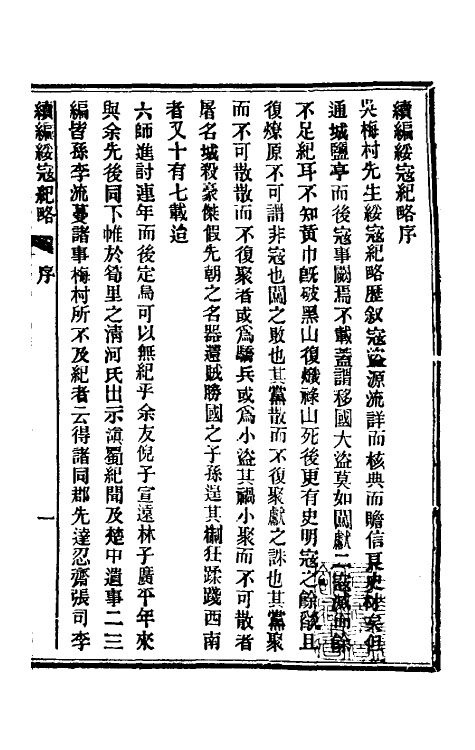 續編綏寇紀略序
吳梅村先生綏寇紀略歷叙寇盜源流詳而核典而贍信良史材矣但
通城鹽亭而後寇事闕焉不載蓋謂移國大盜莫如闖獻二賊滅而餘
不足紀耳不知黃巾旣破黑山復熾祿山死後更有史明寇之餘燄且
復燎原不可謂非寇也闖之敗也其黨散而不復聚獻之誅也其黨聚
而不可散散而不復聚者或爲驕兵或爲小盜其禍小聚而不可散者
屠名城殺豪傑假先朝之名器還賊勝國之子孫逞其猘狂蹂踐西南
者又十有七載迨
六師進討連年而後定烏可以無紀乎余友倪子宣遠林子廣平年來
與余先後同下帷於筍里之淸河氏出示滇蜀紀聞及楚中遺事二三
編皆孫李流蔓諸事梅村所不及紀者云得諸同郡先達忍齋張司李
續編綏寇紀略 序 一